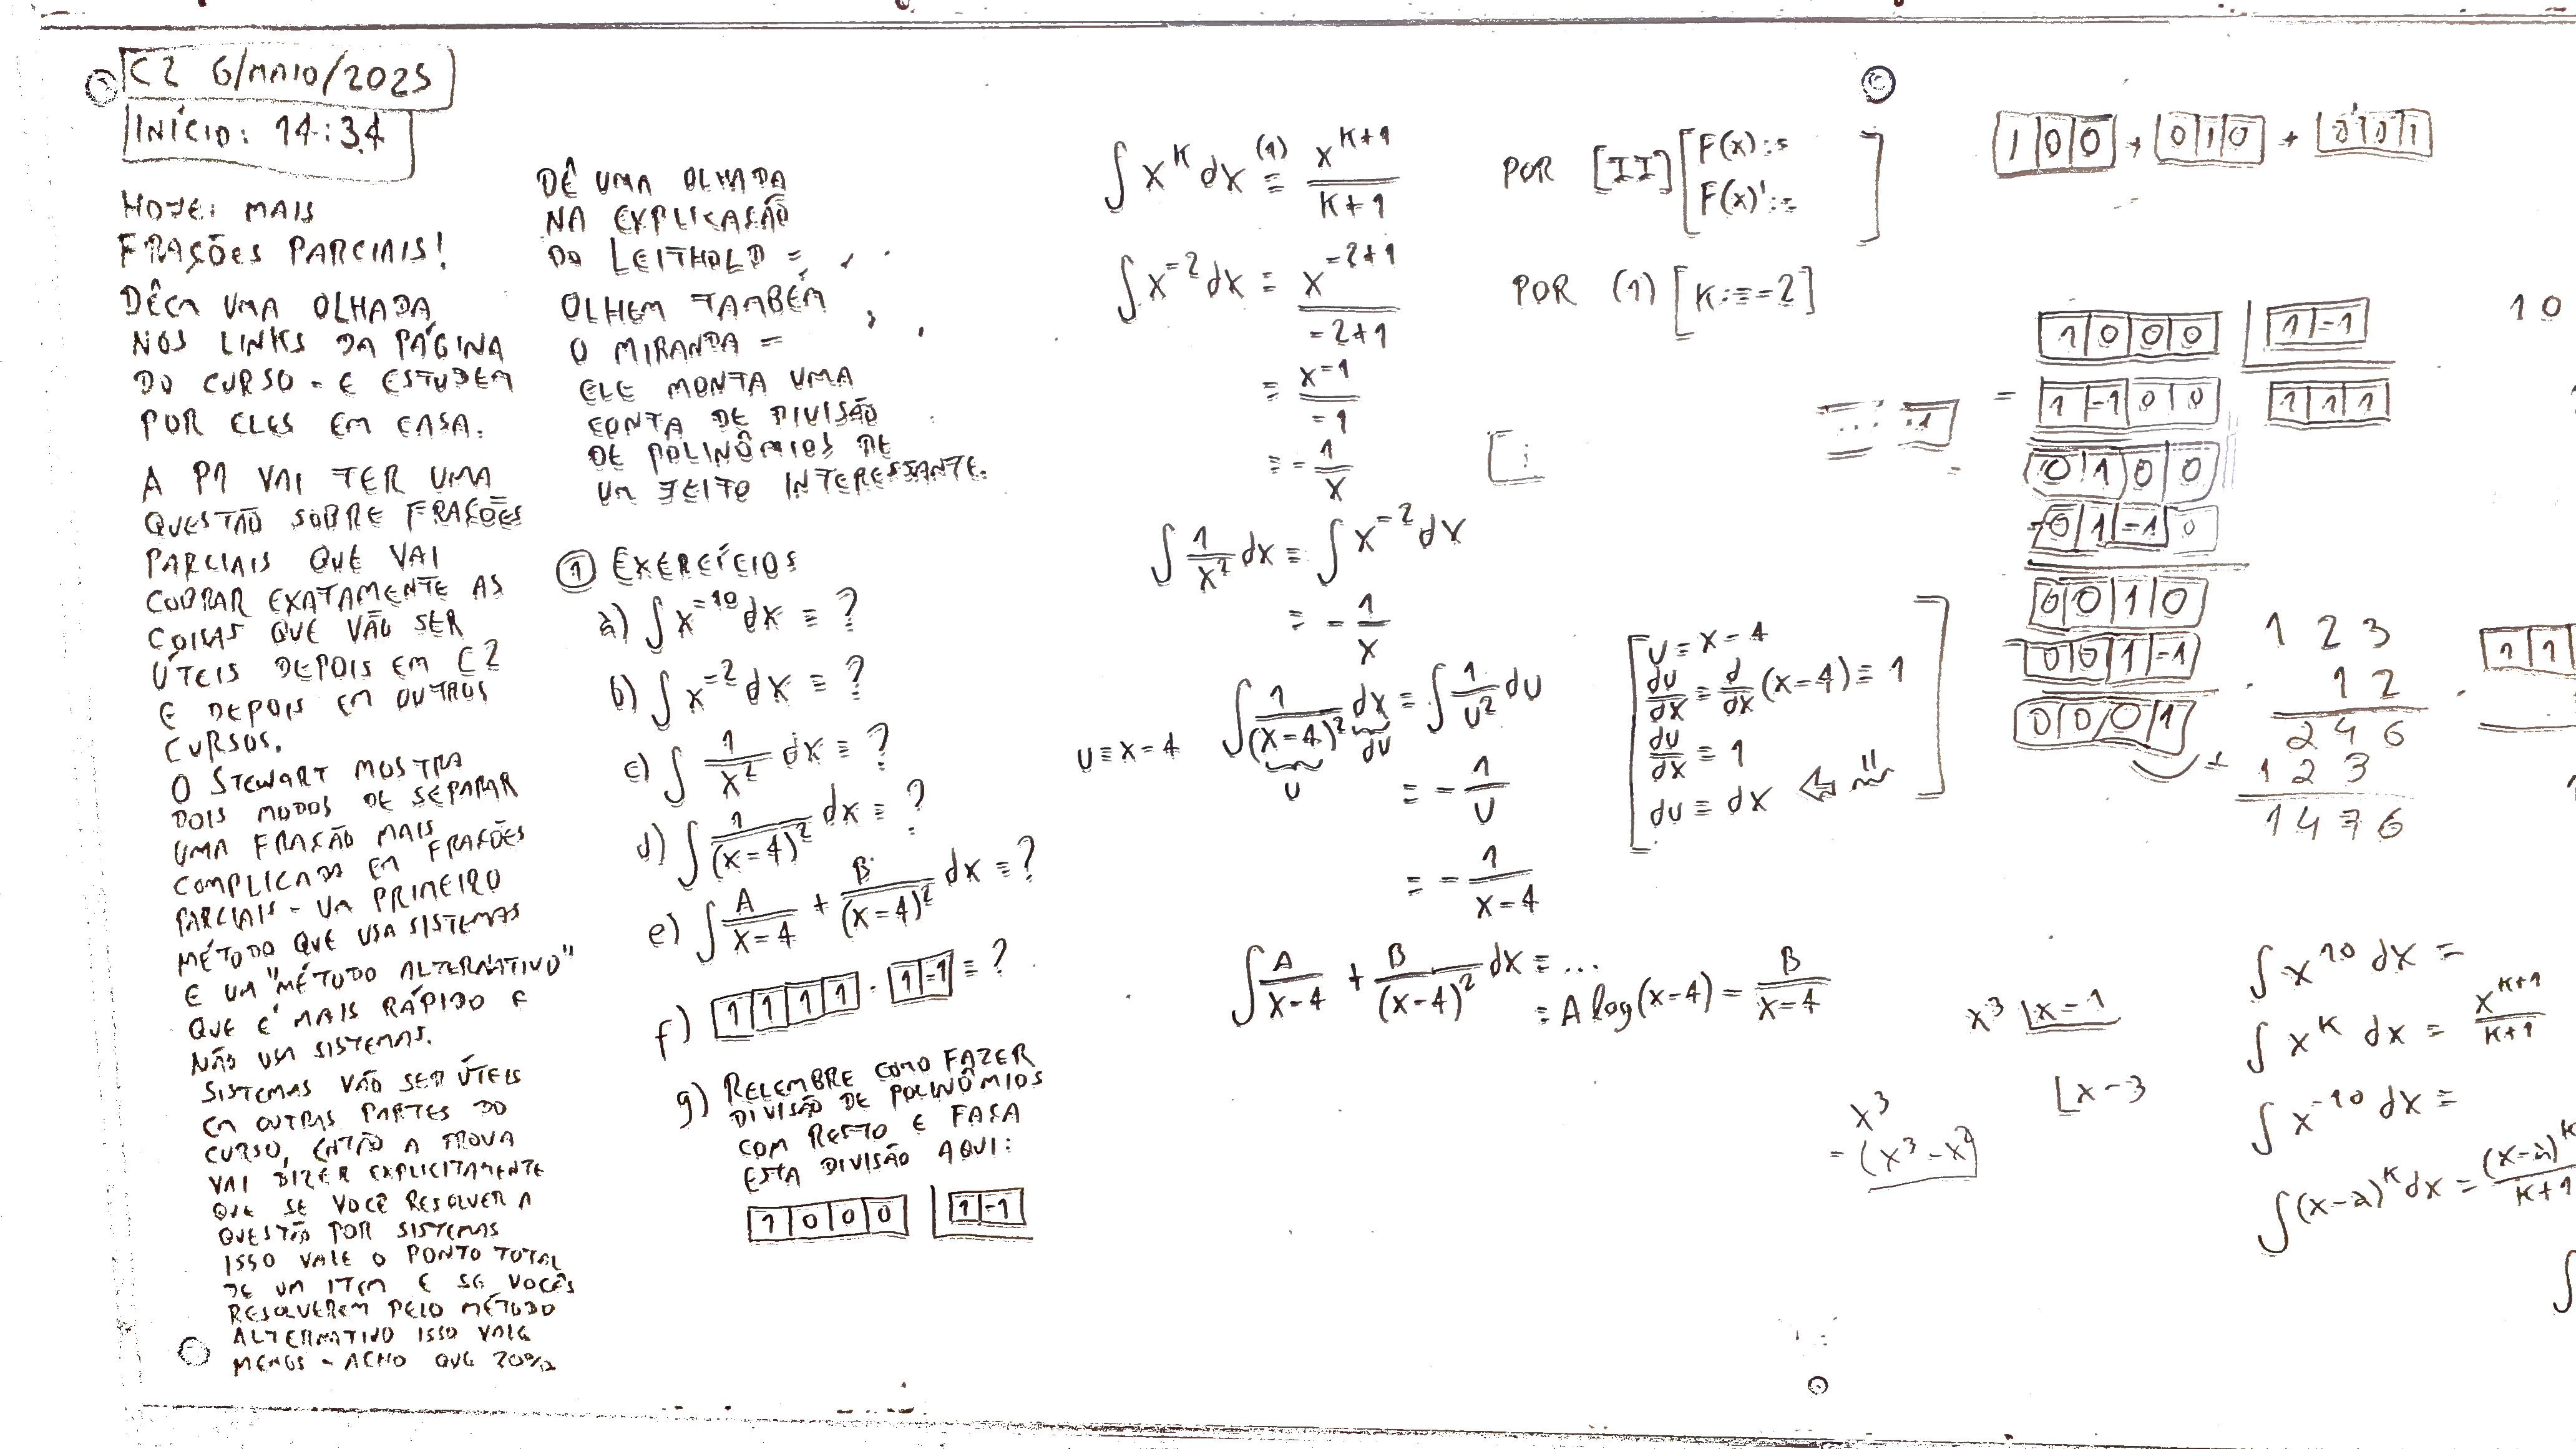 C2 6/MAIO/2025
INÍCIO: 14:34
HOJE: MAIS
FRAÇÕES PARCIAIS!
DÊEM UMA OLHADA
NOS LINKS DA PÁGINA
DO CURSO - E ESTUDEM
POR ELES EM CASA.
A P1 VAI TER UMA
QUESTÃO SOBRE FRAÇÕES
PARCIAIS QUE VAI
COBRAR EXATAMENTE AS
COISAS QUE VÃO SER
ÚTEIS DEPOIS EM C2
E DEPOIS EM OUTROS
CURSOS.
O STEWART MOSTRA
DOIS MODOS DE SEPARAR
UMA FRAÇÃO MAIS
COMPLICADA EM FRAÇÕES
PARCIAIS - UM PRIMEIRO
MÉTODO QUE USA SISTEMAS
E UM "MÉTODO ALTERNATIVO"
QUE É MAIS RÁPIDO E
NÃO USA SISTEMAS.
SISTEMAS VÃO SER ÚTEIS
EM OUTRAS PARTES DO
CURSO, ENTÃO A PROVA
VAI DIZER EXPLICITAMENTE
QUE SE VOCÊ RESOLVER A
QUESTÃO POR SISTEMAS
ISSO VALE O PONTO TOTAL
DE UM ITEM E SE VOCÊS
RESOLVEREM PELO MÉTODO
ALTERNATIVO ISSO VALE
MENOS - ACHO QUE 20%
DÊ UMA OLHADA
NA EXPLICAÇÃO
DO LEITHOLD -
OLHEM TAMBÉM
O MIRANDA -
ELE MONTA UMA
CONTA DE DIVISÃO
DE POLINÔMIOS DE
UM JEITO INTERESSANTE.
① EXERCÍCIOS
a) ∫ x⁻¹⁰ dx = ?
b) ∫ x⁻² dx = ?
c) ∫ 1/x² dx = ?
d) ∫ 1/(x-4)² dx = ?
e) ∫ A/(x-4) + B/(x-4)² dx = ?
f) [1|1|1|1] · [1|-1] = ?
g) RELEMBRE COMO FAZER
DIVISÃO DE POLINÔMIOS
COM RESTO E FAÇA
ESTA DIVISÃO AQUI:
[1|0|0|0] | [1|-1]
∫ x^k dx =(1) x^(k+1)/(k+1) POR [II] [F(x):= F(x)':=]
∫ x⁻² dx = x^(-2+1)/(-2+1) POR (1) [k:=-2]
= x⁻¹/-1
= -1/x
∫ 1/x² dx = ∫ x⁻² dx
= -1/x
u=x-4 ∫ 1/(x-4)² dx = ∫ 1/u² du
u du
= -1/u
= -1/(x-4)
[u=x-4
du/dx = d/dx (x-4) = 1
du/dx = 1
du = dx ⇦ "]
∫ A/(x-4) + B/(x-4)² dx = ...
= A log(x-4) - B/(x-4)
[1|0|0] + [0|1|0] + [0|0|1]
[1|0|0|0] | [1|-1]
- [1|-1|0|0] [1|1|1]
[0|1|0|0]
-[0|1|-1|0]
[0|0|1|0]
-[0|0|1|-1]
[0|0|0|1]
10
1 2 3
1 2
2 4 6
+ 1 2 3
1 4 7 6
[1|1
x³ | x-1
x³
- (x³-x²)
| x-3
∫ x¹⁰ dx =
∫ x^k dx = x^(k+1)/(k+1)
∫ x⁻¹⁰ dx =
∫ (x-a)^k dx = (x-a)^k/(k+1
∫